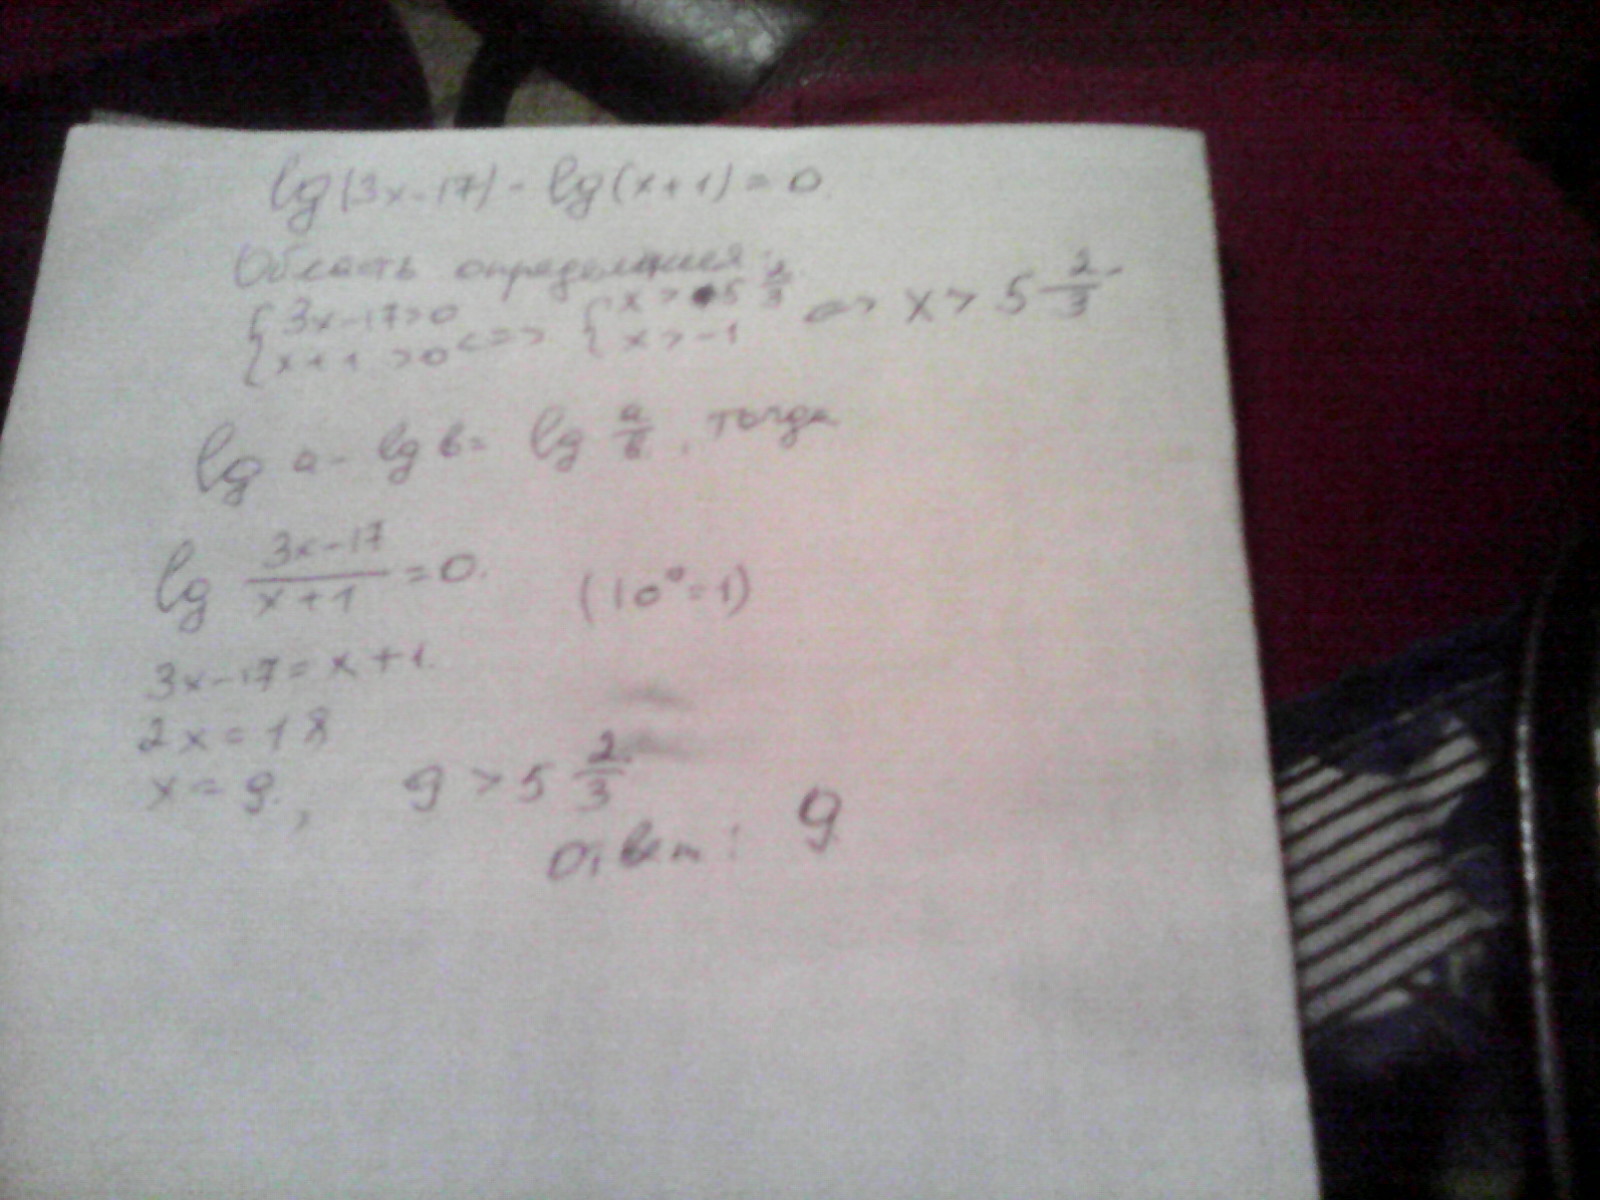 lg(3x-17) - lg(x+1) = 0.
Область определения:
{3x-17>0 {x > 5 2/3
{x+1>0 <=> {x > -1 => x > 5 2/3
lg a - lg b = lg a/b, тогда
lg (3x-17)/(x+1) = 0. (10⁰=1)
3x-17 = x+1.
2x = 18
x = 9, 9 > 5 2/3
Ответ: 9